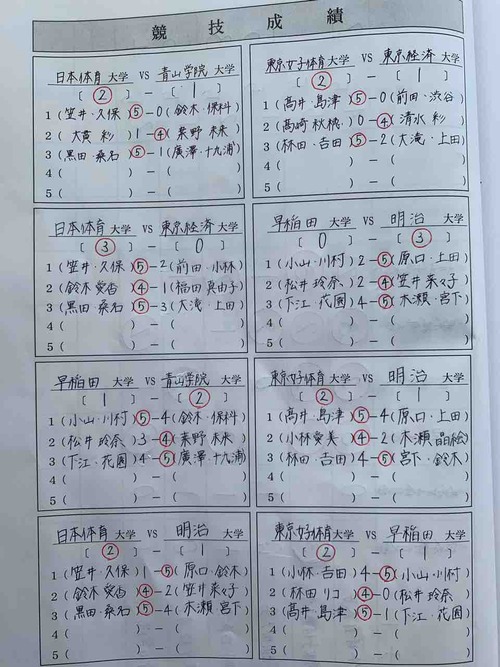 競技成績
日本体育 大学 VS 青山学院 大学
[ ② ] － [ 1 ]
1 (笠井・久保) ⑤－0 (鈴木・保科)
2 (大貫 彩) 1－④ (秦野 未来)
3 (黒田・桑名) ⑤－1 (廣澤・十九浦)
4 ( ) － ( )
5 ( ) － ( )
東京女子体育 大学 VS 東京経済 大学
[ ② ] － [ 1 ]
1 (高井・島津) ⑤－0 (前田・渋谷)
2 (高崎 秋穂) 0－④ (清水 彩)
3 (林田・吉田) ⑤－2 (大滝・上田)
4 ( ) － ( )
5 ( ) － ( )
日本体育 大学 VS 東京経済 大学
[ ③ ] － [ 0 ]
1 (笠井・久保) ⑤－2 (前田・小林)
2 (鈴木 愛香) ④－1 (福田 真由子)
3 (黒田・桑名) ⑤－3 (大滝・上田)
4 ( ) － ( )
5 ( ) － ( )
早稲田 大学 VS 明治 大学
[ 0 ] － [ ③ ]
1 (小山・川村) 2－⑤ (原口・上田)
2 (松井 玲奈) 2－④ (笠井 菜々子)
3 (下江・花園) 4－⑤ (木瀬・宮下)
4 ( ) － ( )
5 ( ) － ( )
早稲田 大学 VS 青山学院 大学
[ 1 ] － [ ② ]
1 (小山・川村) ⑤－4 (鈴木・保科)
2 (松井 玲奈) 3－④ (秦野 未来)
3 (下江・花園) 4－⑤ (廣澤・十九浦)
4 ( ) － ( )
5 ( ) － ( )
東京女子体育 大学 VS 明治 大学
[ ② ] － [ 1 ]
1 (高井・島津) ⑤－4 (原口・上田)
2 (小林 愛美) ④－2 (木瀬 晶絵)
3 (林田・吉田) 4－⑤ (宮下・鈴木)
4 ( ) － ( )
5 ( ) － ( )
日本体育 大学 VS 明治 大学
[ ② ] － [ 1 ]
1 (笠井・久保) 1－⑤ (原口・鈴木)
2 (鈴木 愛香) ④－2 (笠井 菜々子)
3 (黒田・桑名) ⑤－4 (木瀬 宮下)
4 ( ) － ( )
5 ( ) － ( )
東京女子体育 大学 VS 早稲田 大学
[ ② ] － [ 1 ]
1 (小林・吉田) 4－⑤ (小山・川村)
2 (林田 リコ) ④－0 (松井 玲奈)
3 (高井・島津) ⑤－1 (下江・花園)
4 ( ) － ( )
5 ( ) － ( )